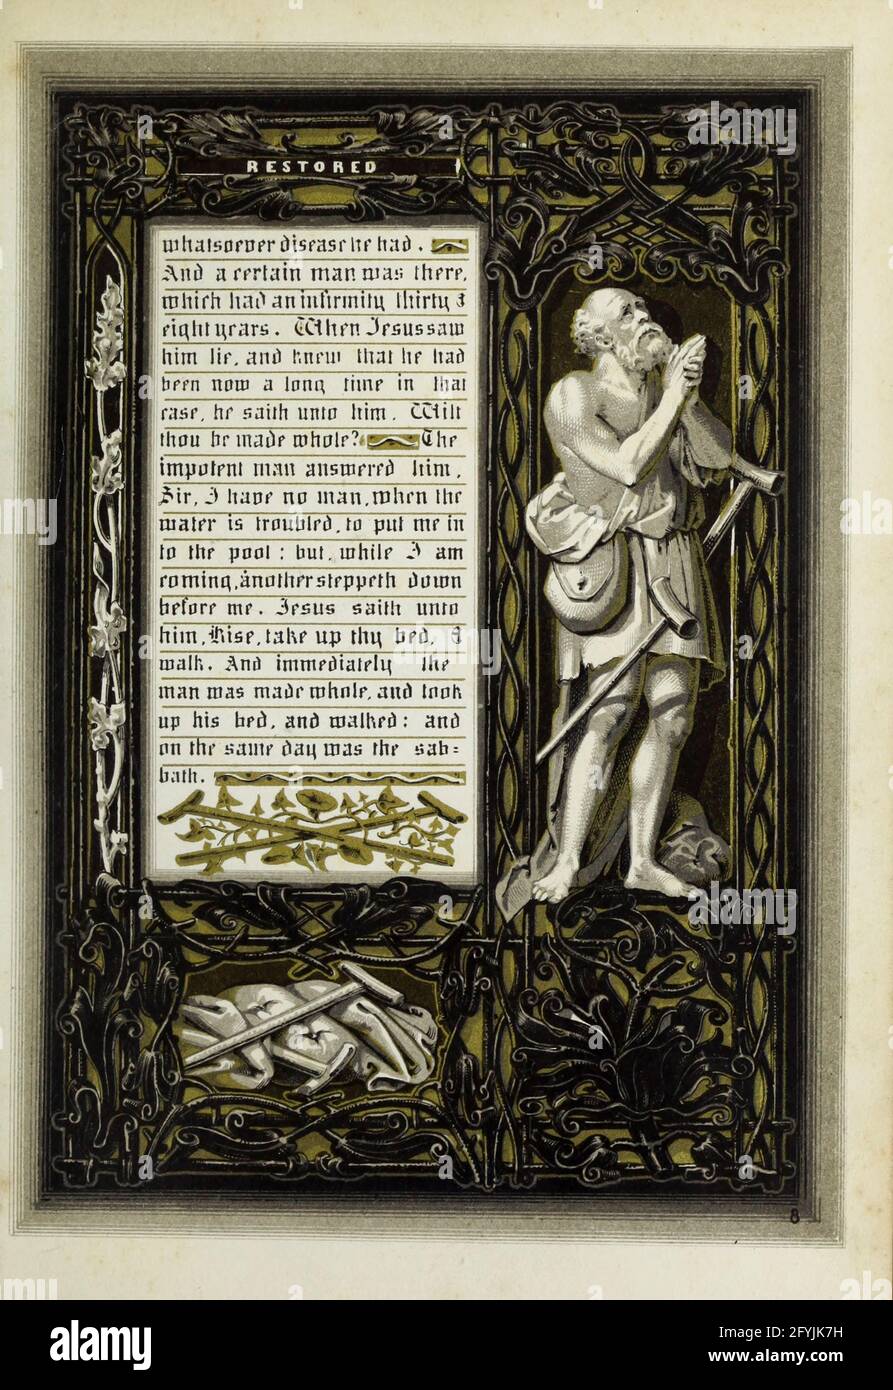 RESTORED
whatsoever disease he had.
And a certain man was there,
which had an infirmity thirty &
eight years. When Jesus saw
him lie, and knew that he had
been now a long time in that
case, he saith unto him, Wilt
thou be made whole? The
impotent man answered him,
Sir, I have no man, when the
water is troubled, to put me in
to the pool: but, while I am
coming, another steppeth down
before me. Jesus saith unto
him, Rise, take up thy bed, &
walk. And immediately the
man was made whole, and took
up his bed, and walked: and
on the same day was the sab=
bath.
8
alamy
Image ID: 2FYJK7H
www.alamy.com